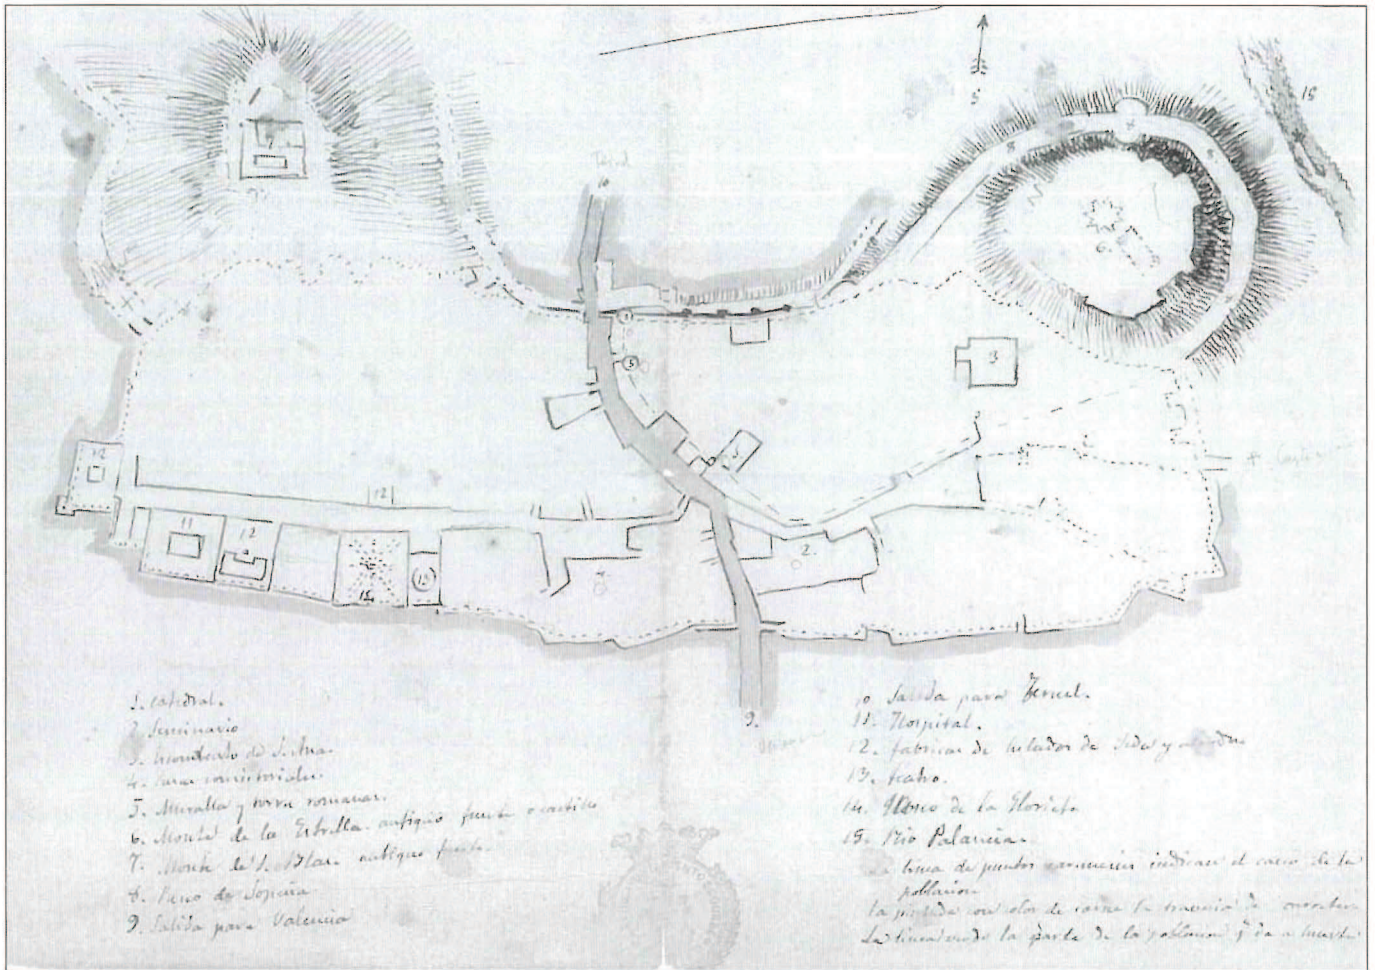 S
15
7
Teruel
10
6
5
3
12
12
11
12
14
13
2.
9.
1. catedral.
2. Seminario
3.
4. casas consistoriales.
5. Muralla y torre romanas.
6. Monte de la Estrella. antiguo fuerte o castillo
7. Monte de S. Blas. antiguo fuerte
8. Paseo de Sopeña
9. Salida para Valencia
10 Salida para Teruel.
11. Hospital.
12. fabricas de hilados de seda y
13. teatro.
14. Paseo de la Glorieta
15. Rio Palancia.
La linea de puntos indican el casco de la
poblacion
la con color de la travesia de carretera
La linea verde la parte de la poblacion q. da a huerta